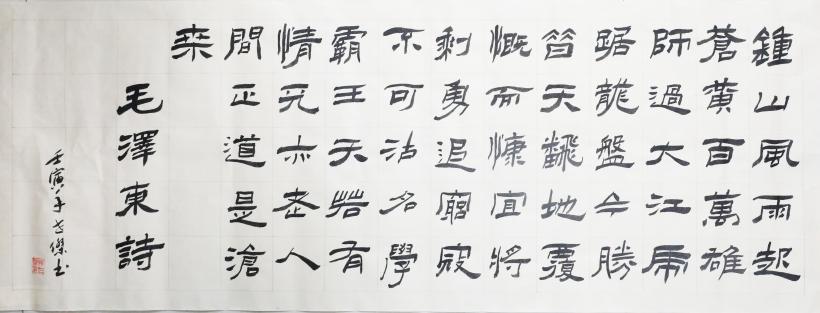 鍾山風雨起
蒼黃百萬雄
師過大江虎
踞龍盤今勝
昔天飜地覆
慨而慷宜將
剩勇追窮寇
不可沽名學
霸王天若有
情天亦老人
間正道是滄
桒
毛澤東詩
壬寅年傑书